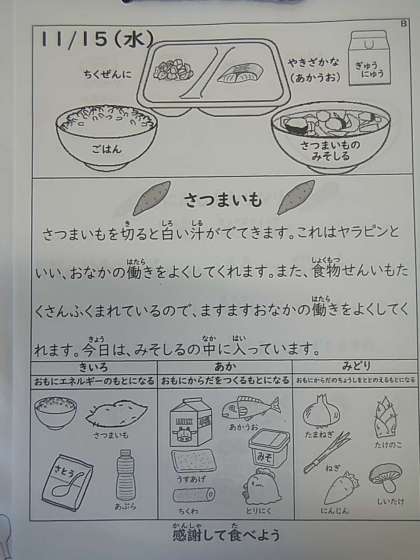 B
11/15(水)
ちくぜんに
やきざかな
(あかうお)
ぎゅう
にゅう
ごはん
さつまいもの
みそしる
さつまいも
さつまいもを切ると白い汁がでてきます。これはヤラピンと
いい、おなかの働きをよくしてくれます。また、食物せんいもた
くさんふくまれているので、ますますおなかの働きをよくしてく
れます。今日は、みそしるの中に入っています。
きいろ
おもにエネルギーのもとになる
さつまいも
さとう
あぶら
あか
おもにからだをつくるもとになる
あかうお
みそ
うすあげ
ちくわ
とりにく
みどり
おもにからだのちょうしをととのえるもとになる
たまねぎ
たけのこ
ねぎ
にんじん
しいたけ
感謝して食べよう